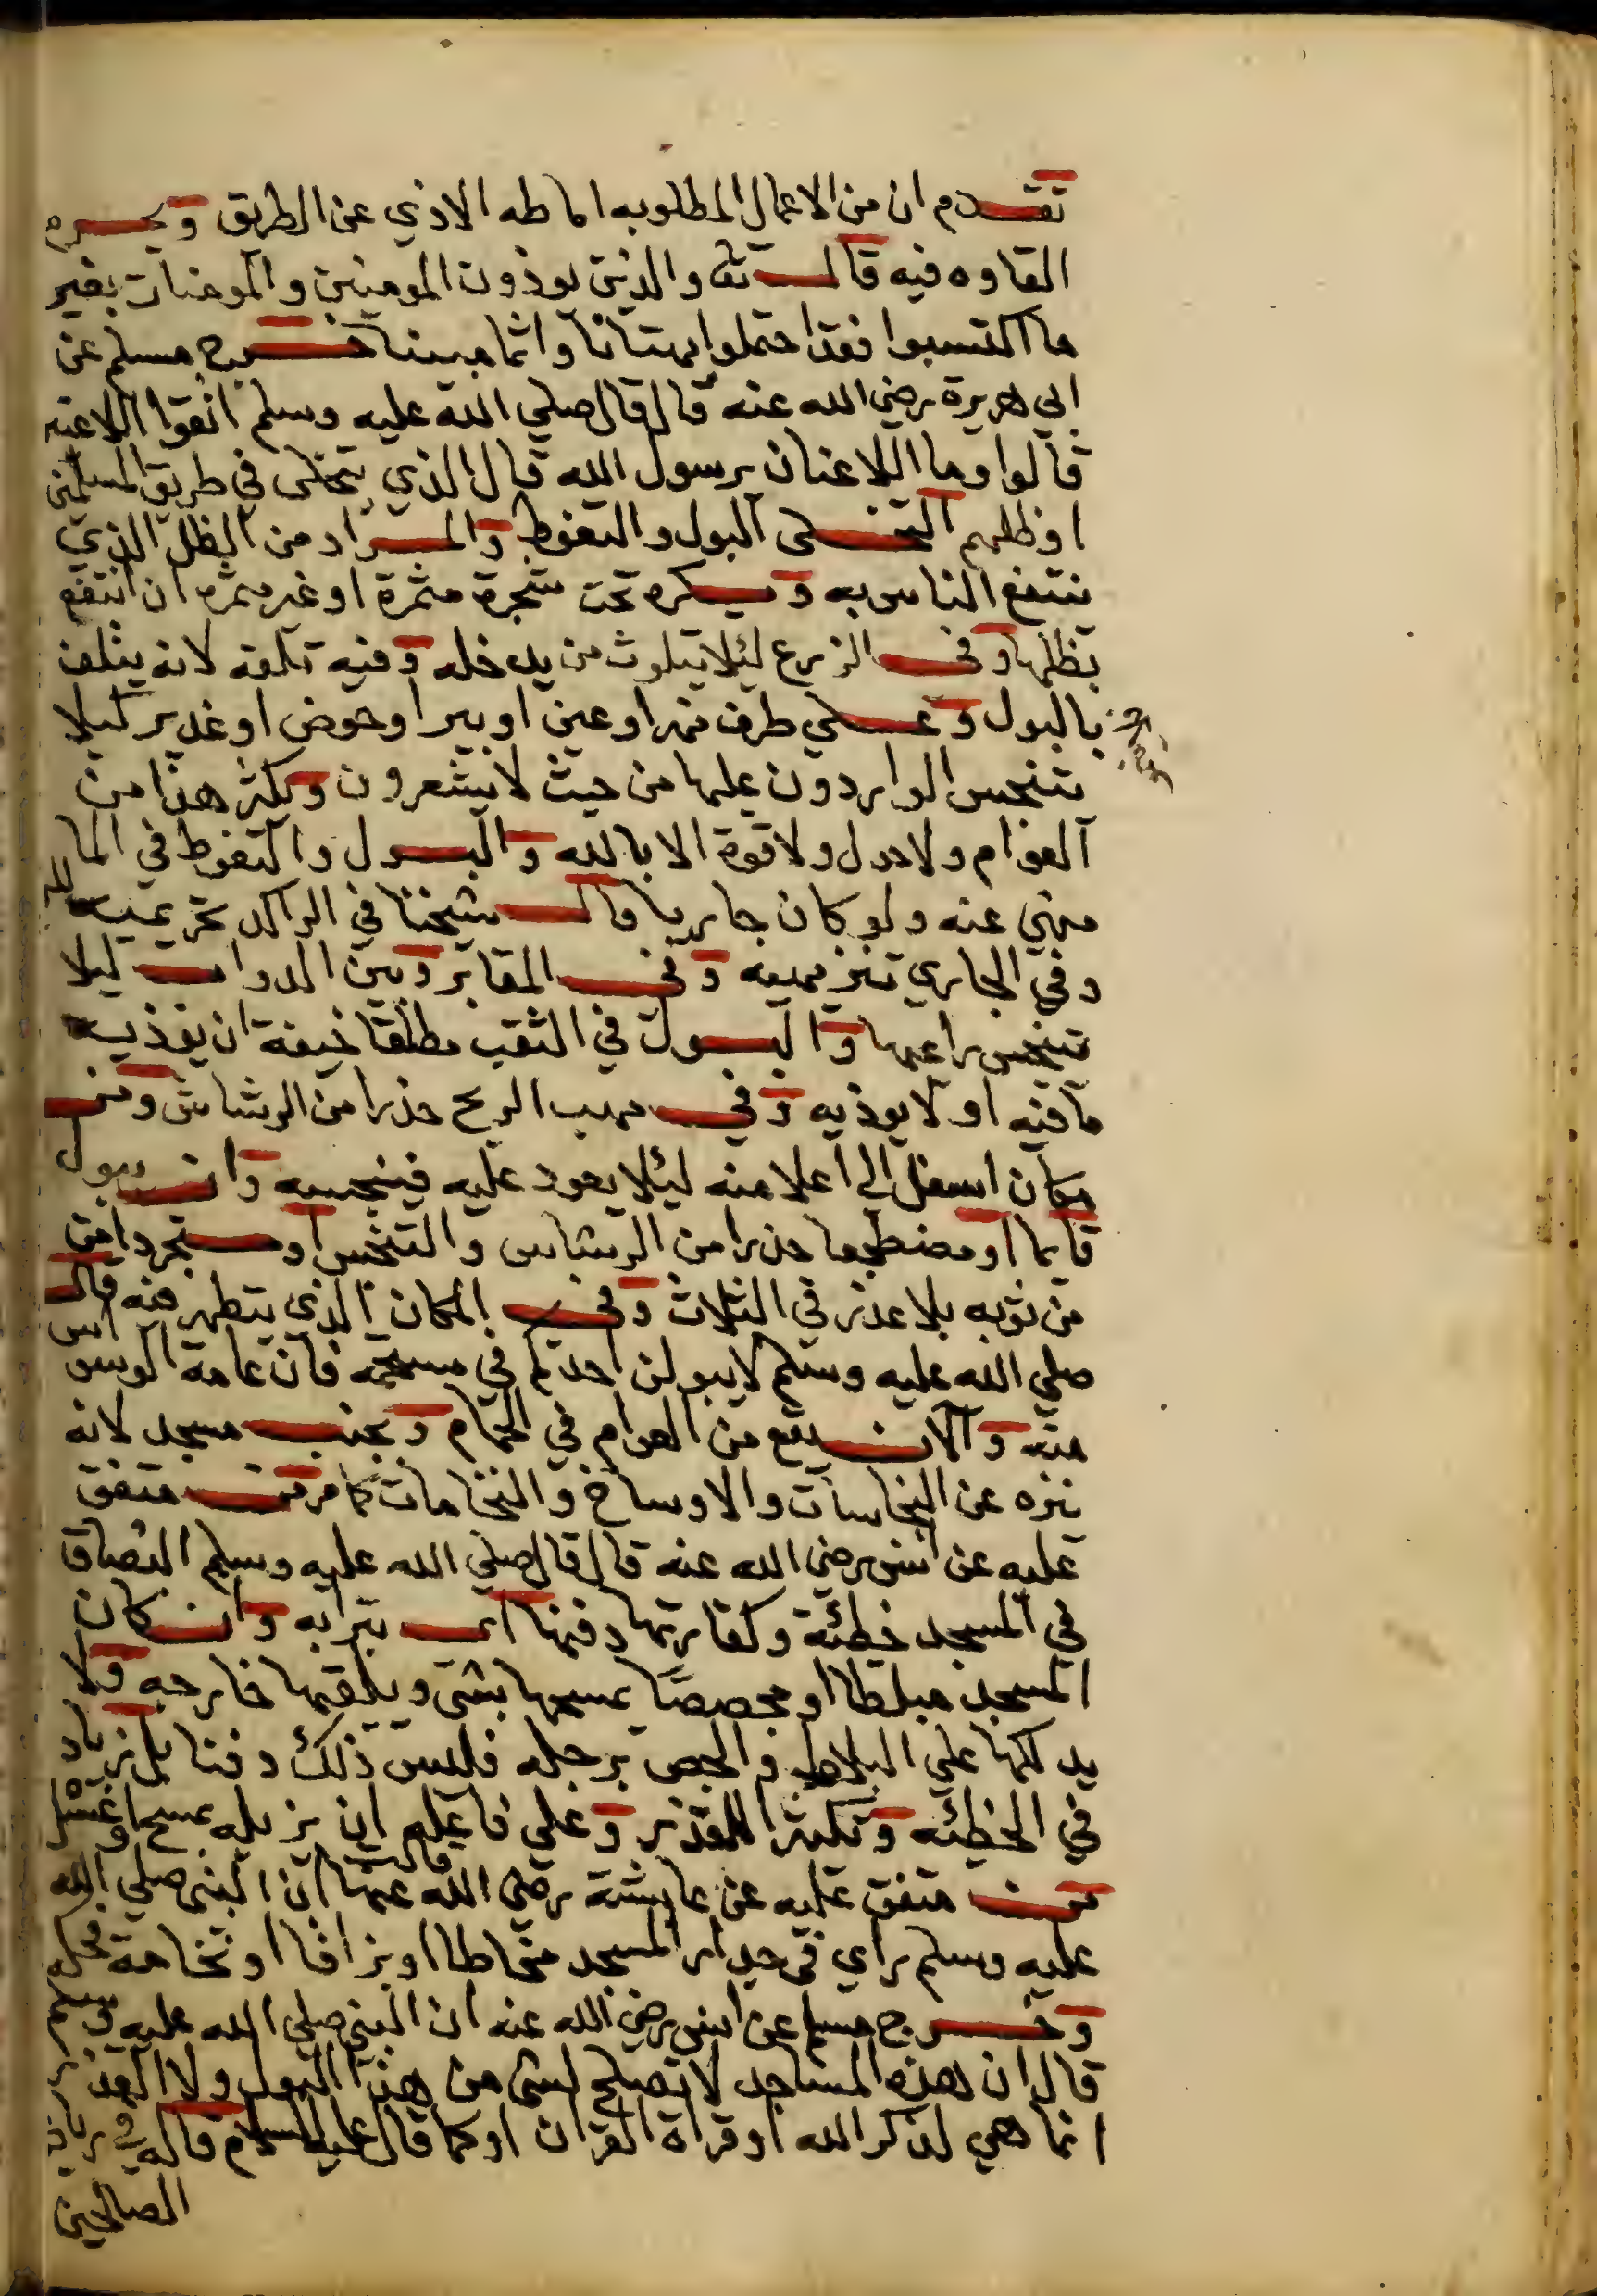 تقدم ان من الاعمال المطلوبه اماطه الاذي عن الطريق ويحرم
القاوه فيه قال تع والذين يوذون المومنين والمومنات بغير
ما اكتسبوا فقد احتملوا بهتانا واثما مبينا خرج مسلم عن
ابي هريرة رضي الله عنه قال قال صلي الله عليه وسلم اتقوا اللاعنين
قالوا وما اللاعنان يرسول الله قال الذي يتخلى في طريق المسلمين
اوظلهم التخلى البول والتغوط والمراد من الظل الذي
ينتفع الناس به ويكره تحت شجرة مثمرة او غير مثمره ان انتفع
بظلها وفي الزرع ليلا يتلوث من يدخله وفيه تلفه لانه يتلف
بالبول وعلي طرف نهر او عين او بير او حوض او غدير ليلا
يتنجس الواردون عليها من حيث لا يشعرون ويكثر هذا من
العوام ولا حول ولا قوة الا بالله والبول والتغوط في الما
منهي عنه ولو كان جاريا قال شيخنا في الراكد تحريميه
وفي الجاري تنزيهيه وفي المقابر وبين الدواب ليلا
يتنجس راعيها والبول في الثقب مطلقا خيفة ان يوذيه
ما فيه او لا يوذيه وفي مهب الريح حذرا من الرشاش ومن
مكان اسفل الي اعلا منه ليلا يعود عليه فينجسه وان يبول
قايما او مضطجعا حذرا من الرشاش والتنجس او متجردا من
من ثوبه بلا عذر في الثلاث وفي المكان الذي يتطهر فيه قال
صلي الله عليه وسلم لا يبولن احدكم في مستحمه فان عامة الوسواس
منه والان يقع من العوام في الحمام وبجنب مسجد لانه
ينزه عن النجاسات والاوساخ والنخامات كما مر متفق
عليه عن انس رضي الله عنه قال قال صلي الله عليه وسلم البصاق
في المسجد خطئة وكفارتها دفنها اي بترابه وان كان
المسجد مبلطا او مجصصا يمسحها بشي ويلقيها خارجه ولا
يدلكها علي البلاط والجص برجله فليس ذلك دفنا بل زياد
في الخطئه وتكثير القذر وعلي فاعله ان يزيله بمسح او غسل
متفق عليه عن عايشة رضي الله عنها قالت ان النبي صلي الله
عليه وسلم راي في جدار المسجد مخاطا او بزاقا او نخامة فحكه
وخرج مسلم عن انس رضي الله عنه ان النبي صلي الله عليه وسلم
قال ان هذه المساجد لا تصلح لشي من هذا البول ولا القذر
انما هي لذكر الله او قراة القران او كما قال عليه السلام قاله في رياض
الصالحين